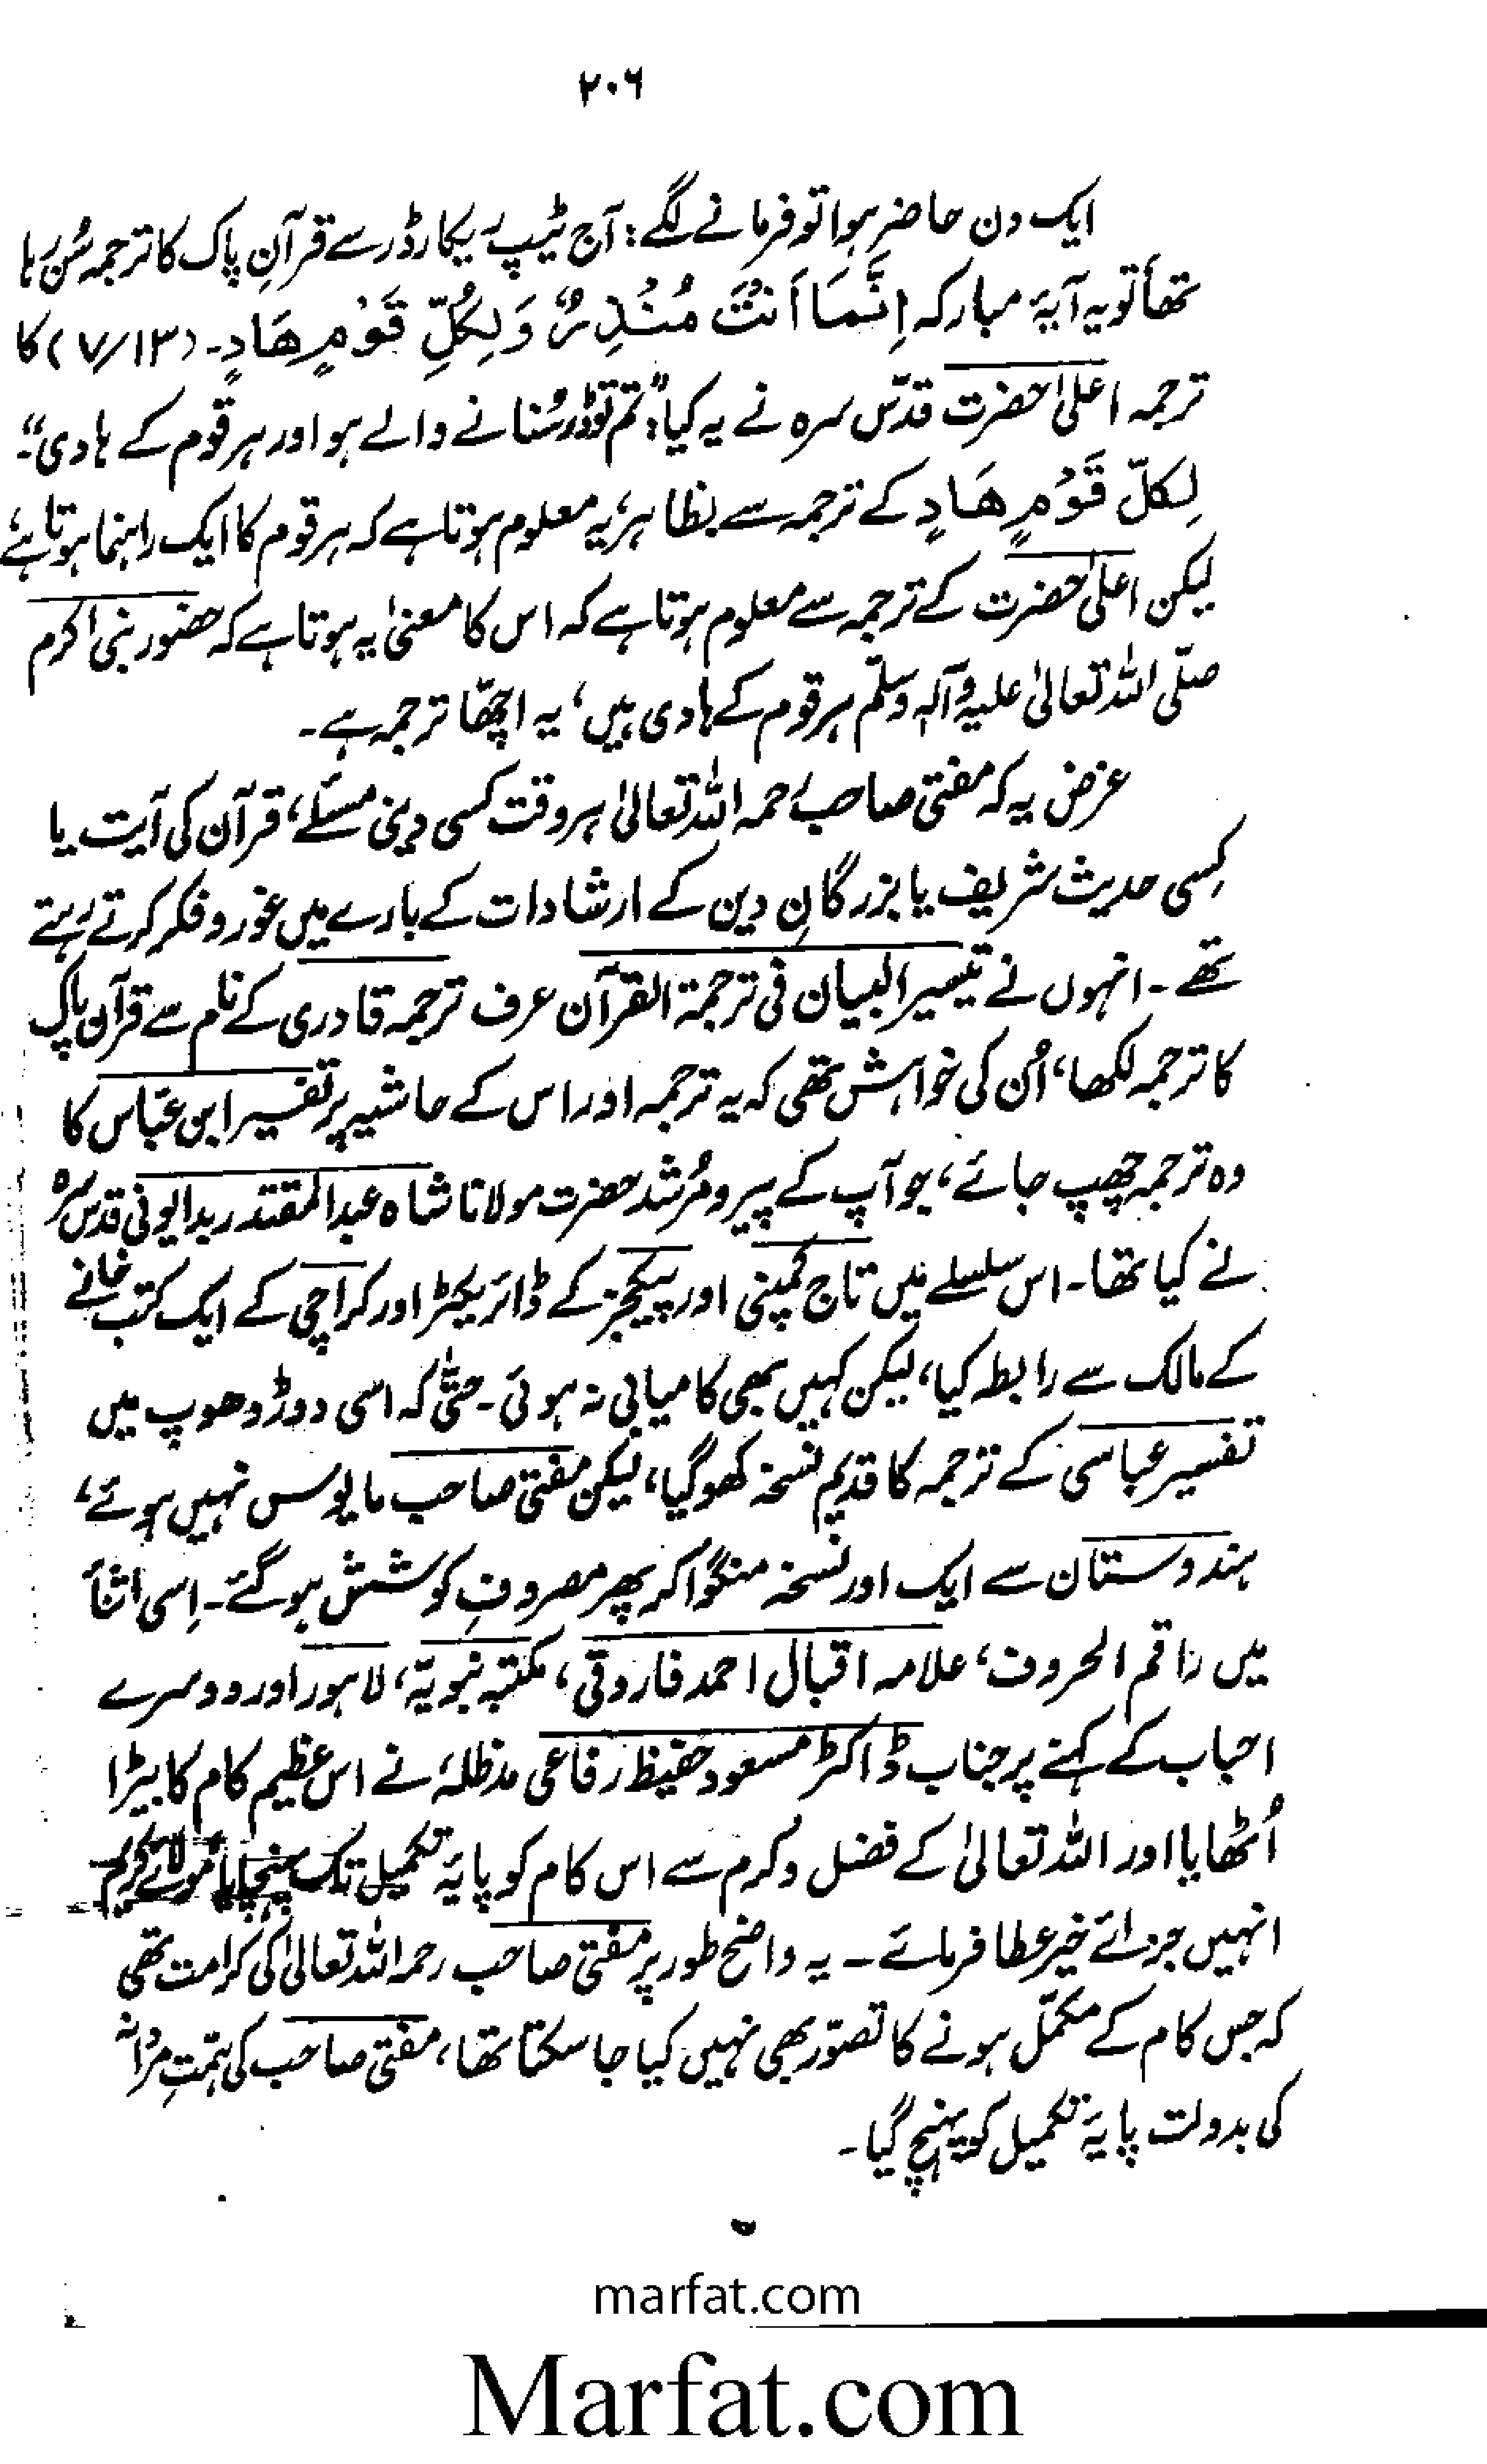 ۲۰۶
ایک دن حاضر ہوا تو فرمانے لگے: آج ٹیپ ریکارڈر سے قرآنِ پاک کا ترجمہ سُن رہا
تھا تو یہ آیۂ مبارکہ اِنَّمَا اَنْتَ مُنْذِرٌ وَلِكُلِّ قَوْمٍ هَادٍ۔ (۷/۱۳) کا
ترجمہ اعلیٰ حضرت قدّس سرہ نے یہ کیا: "تم تو ڈر سُنانے والے ہو اور ہر قوم کے ہادی"۔
لِكُلِّ قَوْمٍ هَادٍ کے ترجمہ سے بظاہر یہ معلوم ہوتا ہے کہ ہر قوم کا ایک راہنما ہوتا ہے،
لیکن اعلیٰ حضرت کے ترجمہ سے معلوم ہوتا ہے کہ اس کا معنیٰ یہ ہوتا ہے کہ حضور نبی اکرم
صلّی اللہ تعالیٰ علیہ وآلہٖ وسلّم ہر قوم کے ہادی ہیں، یہ اچھّا ترجمہ ہے۔
غرض یہ کہ مفتی صاحب رحمہ اللہ تعالیٰ ہر وقت کسی دینی مسئلے، قرآن کی آیت یا
کِسی حدیث شریف یا بزرگانِ دین کے ارشادات کے بارے میں غور و فکر کرتے رہتے
تھے۔ انہوں نے تیسیر البیان فی ترجمۃ القرآن عرف ترجمہ قادری کے نام سے قرآن پاک
کا ترجمہ لکھا، اُن کی خواہش تھی کہ یہ ترجمہ اور اس کے حاشیہ پر تفسیر ابن عبّاس کا
وہ ترجمہ چھپ جائے، جو آپ کے پیر و مُرشد حضرت مولانا شاہ عبدالمقتدر بدایونی قدس سرہ
نے کیا تھا۔ اس سلسلے میں تاج کمپنی اور پیکجز کے ڈائریکٹر اور کراچی کے ایک کتب خانے
کے مالک سے رابطہ کیا، لیکن کہیں بھی کامیابی نہ ہوئی۔ حتّٰی کہ اسی دوڑ دھوپ میں
تفسیر عباسی کے ترجمہ کا قدیم نسخہ کھو گیا، لیکن مفتی صاحب مایوس نہیں ہوئے،
ہندوستان سے ایک اور نسخہ منگوا کر پھر مصروفِ کوشش ہو گئے۔ اِسی اثنأ
میں راقم الحروف، علامہ اقبال احمد فاروقی، مکتبہ نبویّہ، لاہور اور دوسرے
احباب کے کہنے پر جناب ڈاکٹر مسعود حفیظ رفاعی مدظلہٗ نے اس عظیم کام کا بیڑا
اُٹھایا اور اللہ تعالیٰ کے فضل و کرم سے اس کام کو پایۂ تکمیل تک پہنچایا مولائے کریم
انہیں جزائے خیر عطا فرمائے۔ یہ واضح طور پر مفتی صاحب رحمہ اللہ تعالیٰ کی کرامت تھی
کہ جس کام کے مکمّل ہونے کا تصوّر بھی نہیں کیا جا سکتا تھا، مفتی صاحب کی ہمّتِ مردانہ
کی بدولت پایۂ تکمیل کو پہنچ گیا۔
marfat.com
Marfat.com